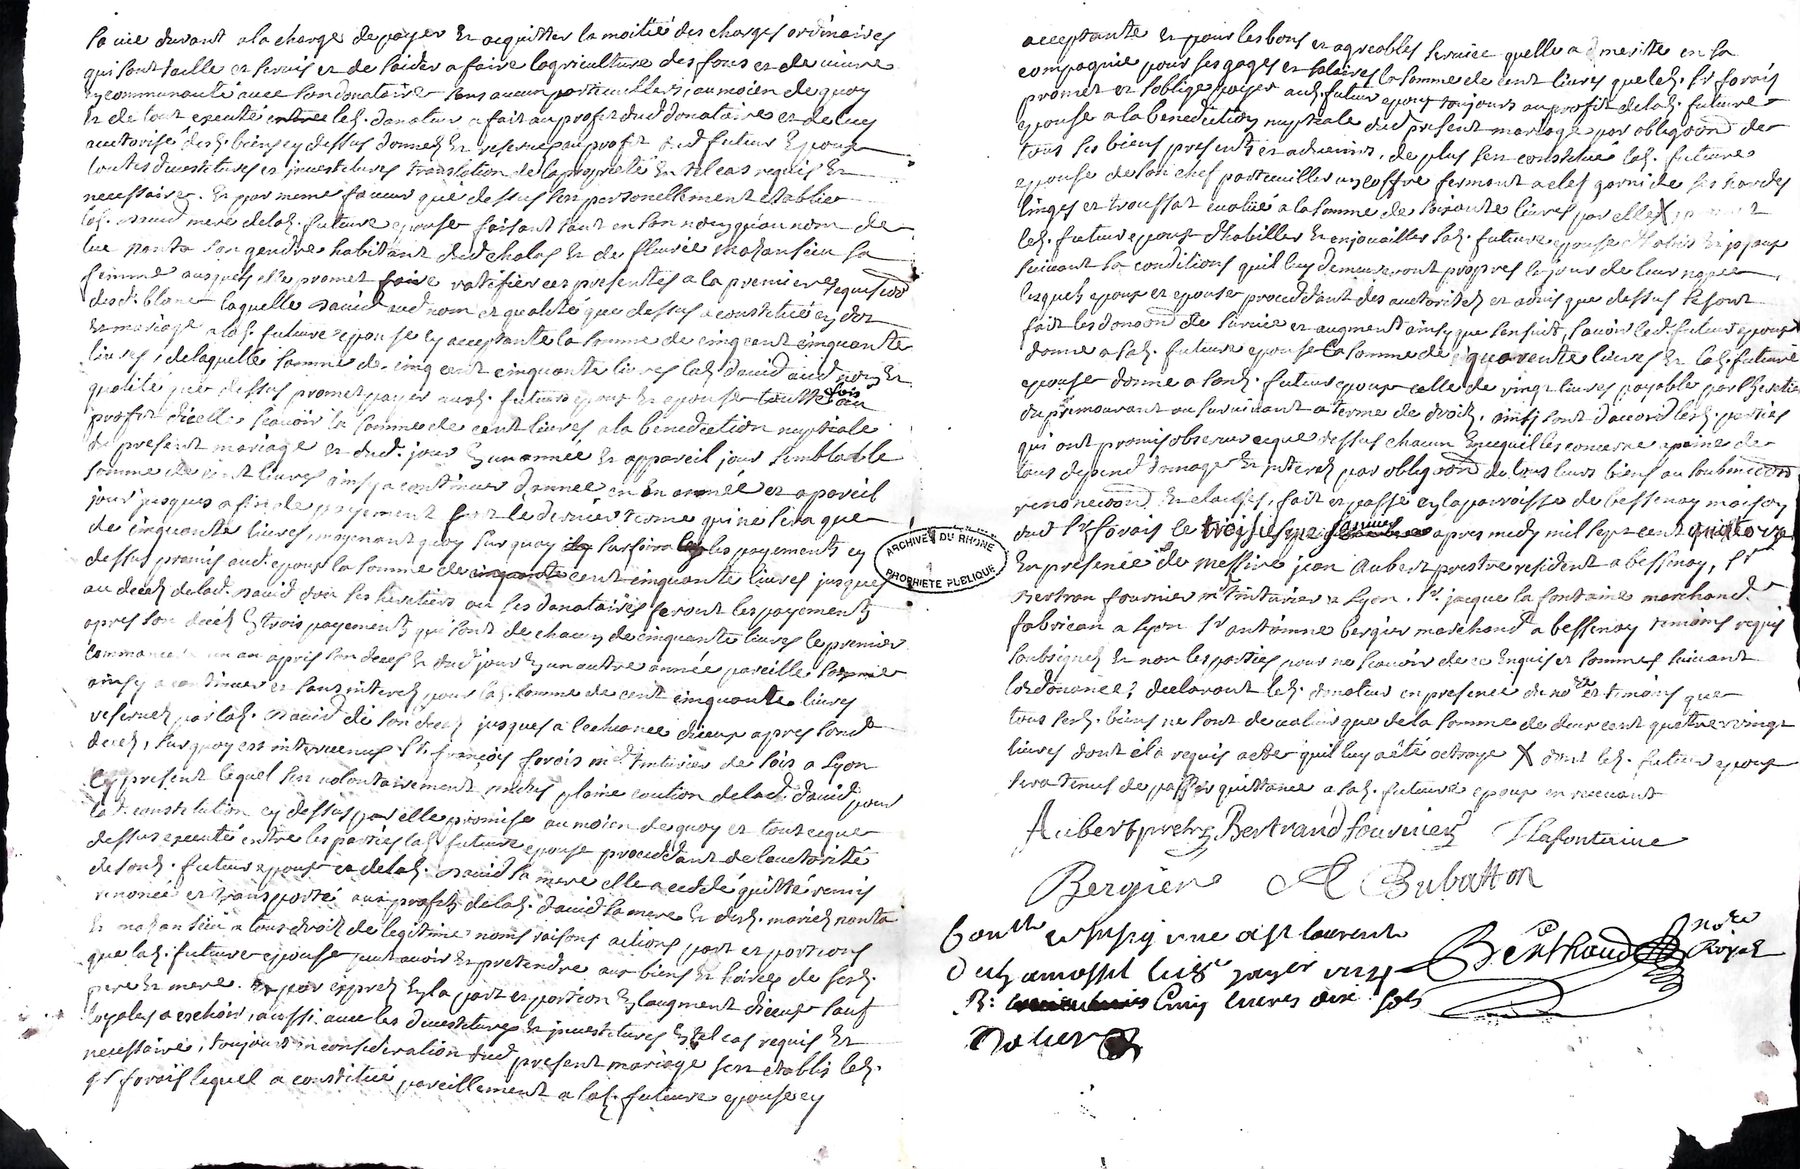 sa vie durant a la charge de payer et acquitter la moitié des charges ordinaires
qui sont taille et servis et de l'aider a faire lagriculture des fons et de vivre
en communauté avec son donataire sans aucun particullier, au moien de quoy
et de tout execute entre led. donateur a fait au profit dud donataire et de luy
auctorisé desd. biens cy dessus donnes et reserve au profit dud futur epoux
toutes devestitures et jnvestitures translation de la proprieté en tel cas requis et
necessaires. et par meme faveur que dessus sest personellement etablie
lad. david mere delad. future epouse faisant tant en son nom quau nom de
luc nanta son gendre habitant dud chalas et de fleurie mazansieu sa
femme ausquels elle promet faire ratifier ces presentes a la premiere requision
dud. blanc laquelle david aud nom et qualité que dessus a constitué en dot
et mariage a lad. future epouse cy acceptante la somme de cinq cent cinquante
livres, delaquelle somme de cinq cent cinquante livres lad david aud nom et
qualité que dessus promet payer aud. future epoux et epouse toutesfois au
profit dicelle scavoir la somme de cent livres a la benediction nuptiale
du present mariage et dud. jour en un année et appareil jour semblable
somme de cent livres ainsy a continuer dannée en en année et apareil
jour jusques a fin de payement sauf le dernier terme qui ne sera que
de cinquante livres, moyenant quoy surquoy se fera les payements cy
dessus promis aud. epoux la somme de cent cinquante livres jusques
au deces delad. david dou ses heretiers ou ses donataires feront les payements
apres son deces en trois payements qui sont de chacun de cinquante livres le premier
commancera un an apres son deces et dud jour en un autre année pareille somme
ainsy a continuer et sans interets pour lad. somme de cent cinquante livres
reservés par lad. david de son deces jusques a lecheance diceux apres sond.
deces, surquoy est intervenus sr. françois forois md tinturier de soie a Lyon
cy present lequel sest volontairement rendus plaine caution delad. david pour
lad. constitution cy dessus par elle promise au moien de quoy et tout ce que
dessus executé entre les parties lad future epouse proceddant de lautorité
de sond. futur epoux et delad. david sa mere elle a ceddé quitté remis
renoncé et transporté aux profits delad. david sa mere et desd. mariés nanta
et mazansieu a tous droits de legitime noms raisons actions part et portions
que lad. future epouse peut avoir et pretendre aux biens et hoiries de sesd.
pere et mere. et par expres en la part et portion en laugment diceux sauf
loyales a eschoir, aussi avec les devestitures et jnvestitures en tel cas requis et
necessaires, toujours in consideration dud present mariage sest etablis led.
sr forois lequel a constitué pareillement a lad. future epouse cy
acceptante et pour les bons et agreables service quelle a merité en sa
compagnie pour ses gages et salaires la somme de cent livres que led. sr forois
promet et soblige payer aud. futur epoux toujours au profit delad. future
epouse a la benediction nuptiale dud present mariage par obligaon de
tous ses biens presents et advenirs, de plus sest constitué lad. future
epouse de son chef particullier un coffre fermant a clef garni de ses hardes
linges et troussat evalué a la somme de soixante livres par elle X promet
led. futur epoux dhabiller et enjouailler sad. future epouse dhabis et joyaux
suivant sa conditions quil luy demeureront propres le jour de leur nopces
lesquels epoux et epouse proceddant des auctorités et avis que dessus se sont
fait les donaon de survie et augment ainsy que sensuit, scavoir led. futur epoux
donne a sad. future epouse la somme de quarente livres et lad. future
epouse donne a sond. futur epoux celle de vingt livres payable par lheretier
du premourant au survivant a terme de droits. ainsj sont daccord lesd. parties
qui ont promis observer ce que dessus chacun en ce qui les concerne a peine de
tous depend damage et interets par obligaon de tous leurs biens au soubmiaon
renonciaon et clauses, fait et passé en la parroisse de bessenay maison
dud sr forois le treizieme janvier apres midy mil sept cent quatorze
En presence de messire jean aubert prestre resident a bessenay, sr
Bertran fournier md tinturier a Lyon. sr. jacque la fontaine marchand
fabrican a Lyon sr antoinne bergier marchand a bessenay temoins requis
soubsignes et non les parties pour ne scavoir de ce enquis et sommes suivant
lordonance; declarant led. donateur en presence du nore et temoins que
tous sesd. biens ne sont de valeur que de la somme de deux cent quatre vingt
livres dont il a requis acte quil luy a été octroyé X dont led. futur epoux
sera tenus de passer quittance a sad. future epouse en recevant
Aubert pretre Bertrand fournier J Lafontaine
Bergier A C Bubatton
Berthaud nore Royal
cinq livres dix sols